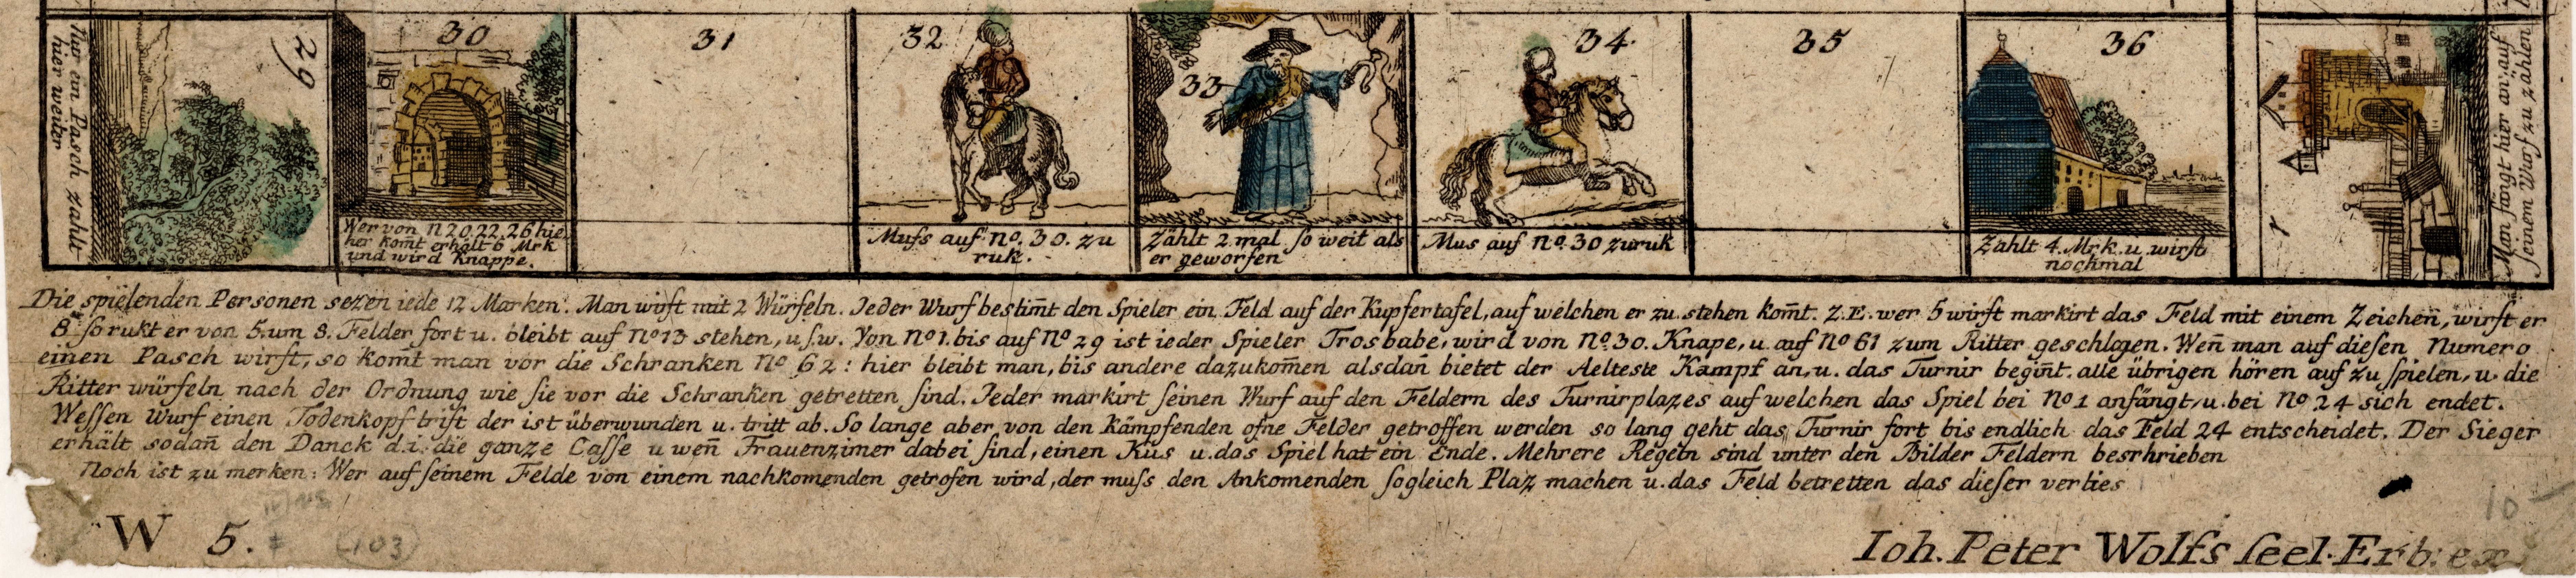 Nur ein Pasch zahlt
hier weiter
29
30
Wer von N 20.22.26 hie
her kom̄t erhält 6 Mrk
und wird Knappe.
31
32
Muſs auf no. 30. zu
ruk.
33
Zählt 2 mal ſo weit als
er geworfen
34.
Mus auf no. 30 zuruk
35
36
Zahlt 4. Mrk. u. wirft
nochmal
1
Man fängt hier an auf
ſeinem Wurf zu zählen
Die spielenden Personen sezen iede 12 Marken. Man wirft mit 2 Würfeln. Jeder Wurf bestim̄t den Spieler ein Feld auf der Kupfertafel, auf welchen er zu stehen kom̄t. Z.E. wer 5 wirft markirt das Feld mit einem Zeichen̄, wirft er
8 ſo rukt er von 5. um 8. Felder fort u. bleibt auf No 13 stehen, u.ſ.w. Von No 1. bis auf No 29 ist ieder Spieler Trosbabe, wird von No. 30. Knape, u. auf No 61 zum Ritter geschlagen. Wen̄ man auf dieſen Numero
einen Pasch wirft, so komt man vor die Schranken No 62: hier bleibt man, bis andere dazukom̄en alsdan̄ bietet der Aelteste Kampf an, u. das Turnir begint. alle übrigen hören auf zu ſpielen, u. die
Ritter würfeln nach der Ordnung wie sie vor die Schranken getretten ſind. Jeder markirt ſeinen Wurf auf den Feldern des Turnirplazes auf welchen das Spiel bei No 1 anfängt, u. bei No. 24 sich endet.
Weſſen Wurf einen Todenkopf trift der ist überwunden u. tritt ab. So lange aber von den Kämpfenden ofne Felder getroffen werden so lang geht das Turnir fort bis endlich das Feld 24 entscheidet. Der Sieger
erhält sodan̄ den Danck d.i. die ganze Caſſe u wen̄ Frauenzimer dabei ſind, einen Kus u. das Spiel hat ein Ende. Mehrere Regeln sind unter den Bilder Feldern besrhrieben
Noch ist zu merken: Wer auf ſeinem Felde von einem nachkomenden getrofen wird, der muſs den Ankomenden ſogleich Plaz machen u. das Feld betretten das dieſer verlies
W 5. (103) 10
Ioh. Peter Wolfs ſeel. Erb: ex